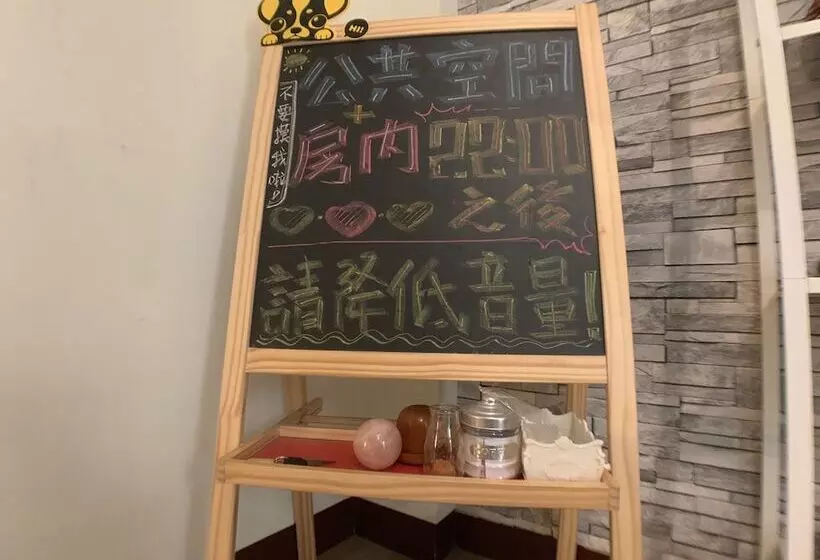 HI!
公共空間
+
房内22:00
之後
請降低音量!
不要摸我啦!